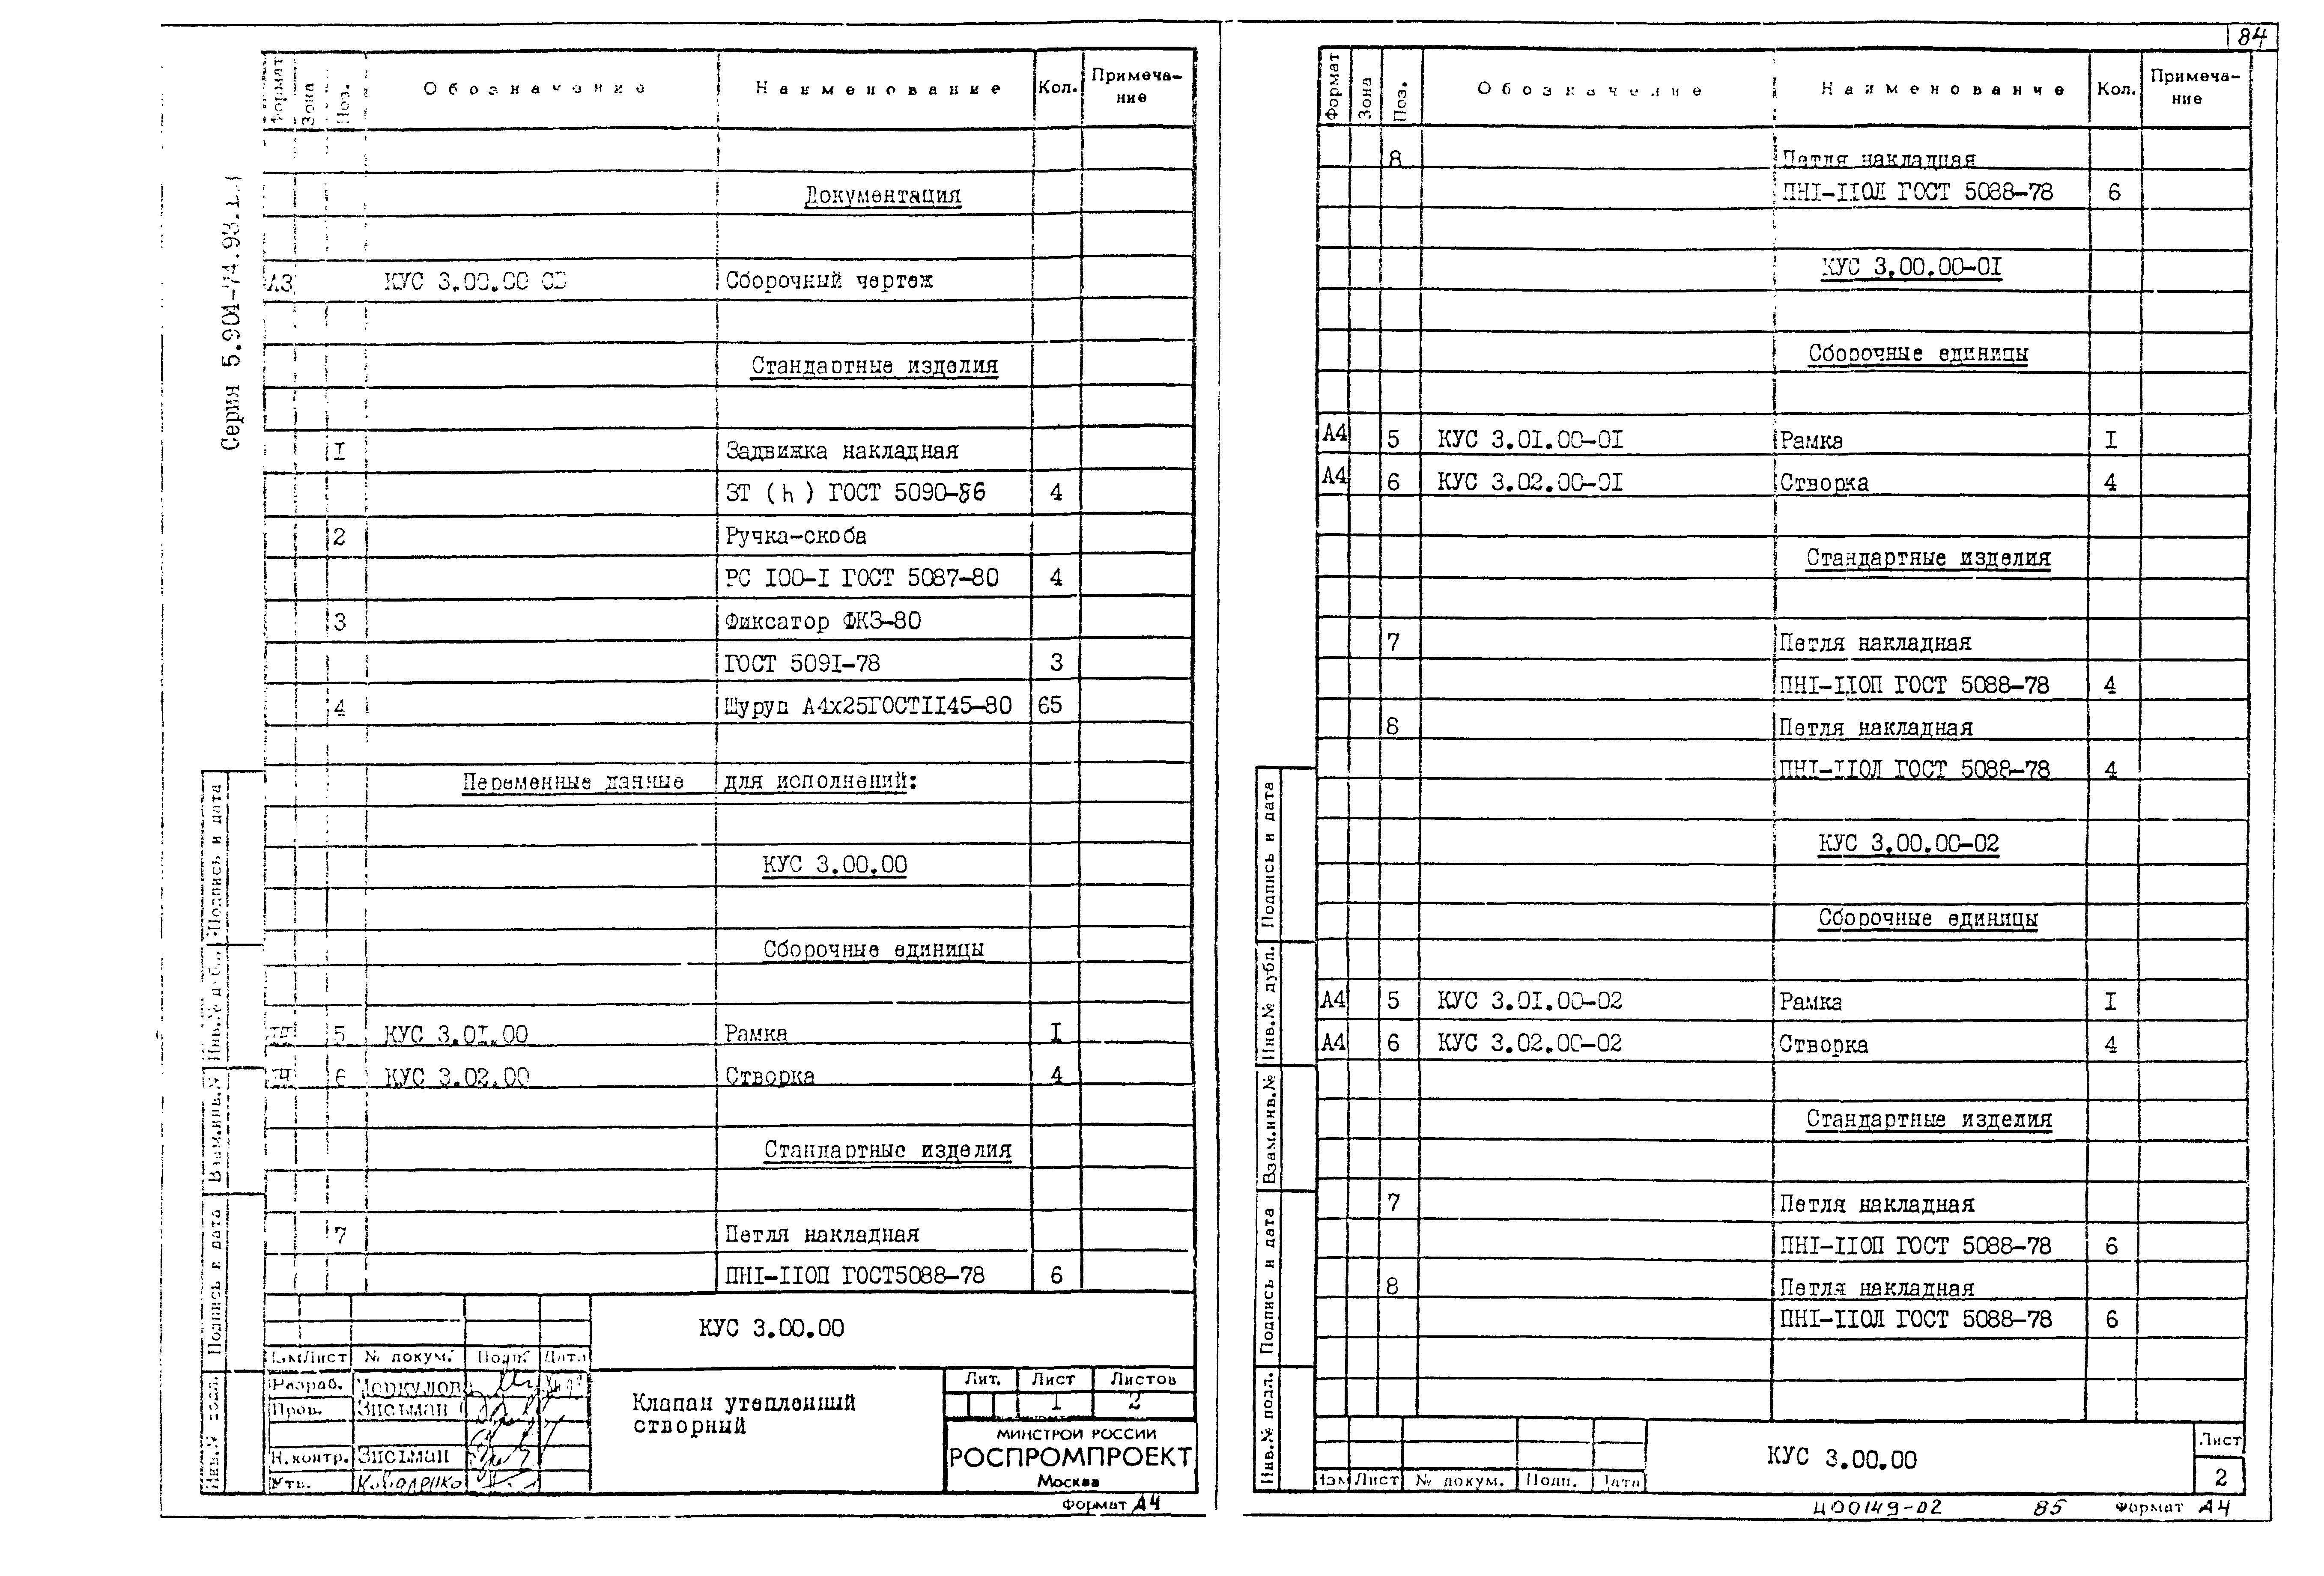 84
Серия 5.904-74.93.1.1
Формат Зона Поз. Обозначение Наименование Кол. Примеча-
ние
Документация
А3 КУС 3.00.00 СБ Сборочный чертеж
Стандартные изделия
I Задвижка накладная
ЗТ (h) ГОСТ 5090-86 4
2 Ручка-скоба
РС I00-I ГОСТ 5087-80 4
3 Фиксатор ФК3-80
ГОСТ 509I-78 3
4 Шуруп А4х25ГОСТII45-80 65
Переменные данные для исполнений:
КУС 3.00.00
Сборочные единицы
5 КУС 3.0I.00 Рамка I
6 КУС 3.02.00 Створка 4
Стандартные изделия
7 Петля накладная
ПНI-IIОП ГОСТ5088-78 6
КУС 3.00.00
Изм Лист № докум. Подп. Дата
Разраб. Меркулов
Пров. Зисьман
Н.контр. Зисьман
Утв. Коваленко
Клапан утепленный
створный
Лит. Лист Листов
1 2
МИНСТРОЙ РОССИИ
РОСПРОМПРОЕКТ
Москва
Формат А4
Подпись и дата
Инв.№ дуб
Взам.инв.№
Подпись и дата
Инв.№ подл.
Формат Зона Поз. Обозначение Наименование Кол. Примеча-
ние
8 Петля накладная
ПНI-IIОЛ ГОСТ 5088-78 6
КУС 3.00.00-0I
Сборочные единицы
А4 5 КУС 3.0I.00-0I Рамка I
А4 6 КУС 3.02.00-0I Створка 4
Стандартные изделия
7 Петля накладная
ПНI-IIОП ГОСТ 5088-78 4
8 Петля накладная
ПНI-IIОЛ ГОСТ 5088-78 4
КУС 3.00.00-02
Сборочные единицы
А4 5 КУС 3.0I.00-02 Рамка I
А4 6 КУС 3.02.00-02 Створка 4
Стандартные изделия
7 Петля накладная
ПНI-IIОП ГОСТ 5088-78 6
8 Петля накладная
ПНI-IIОЛ ГОСТ 5088-78 6
Изм Лист № докум. Подп. Дата
КУС 3.00.00
Лист
2
Подпись и дата
Инв.№ дубл.
Взам.инв.№
Подпись и дата
Инв.№ подл.
Ц00149-02 85 Формат А4